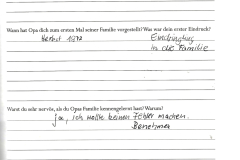 Wann hat Opa dich zum ersten Mal seiner Familie vorgestellt? Was war dein erster Eindruck?
Herbst 1970 Eindringling
in die Familie
Warst du sehr nervös, als du Opas Familie kennengelernt hast? Warum?
Ja, ich wollte keinen Fehler machen.
Benehmen